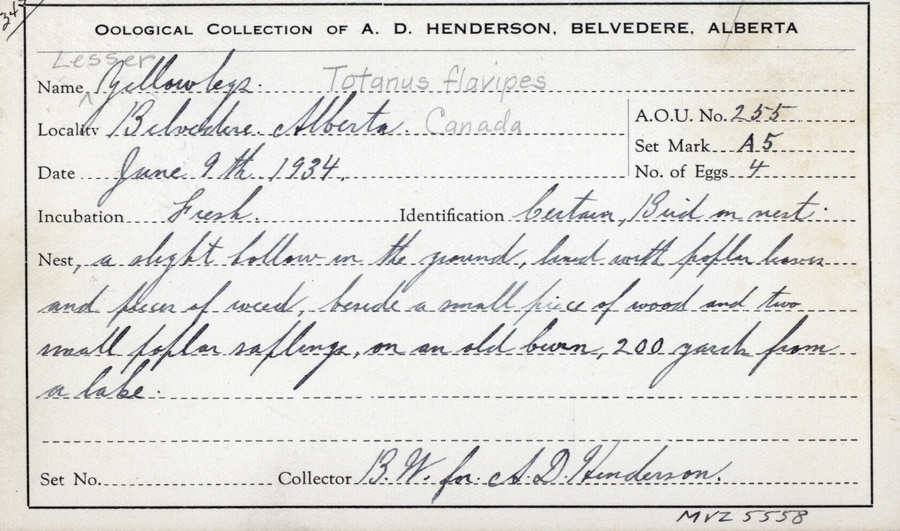 347
OOLOGICAL COLLECTION OF A. D. HENDERSON, BELVEDERE, ALBERTA
Lesser
Name Yellowlegs. Totanus flavipes
Locality Belvedere. Alberta. Canada
A.O.U. No. 255
Set Mark A5
Date June 9th. 1934.
No. of Eggs 4
Incubation Fresh. Identification Certain, Bird on nest.
Nest, a slight hollow in the ground, lined with poplar leaves
and pieces of weed, beside a small piece of wood and two
small poplar saplings, on an old burn, 200 yards from
a lake.
Set No. Collector B.W. for A.D. Henderson.
MVZ 5558